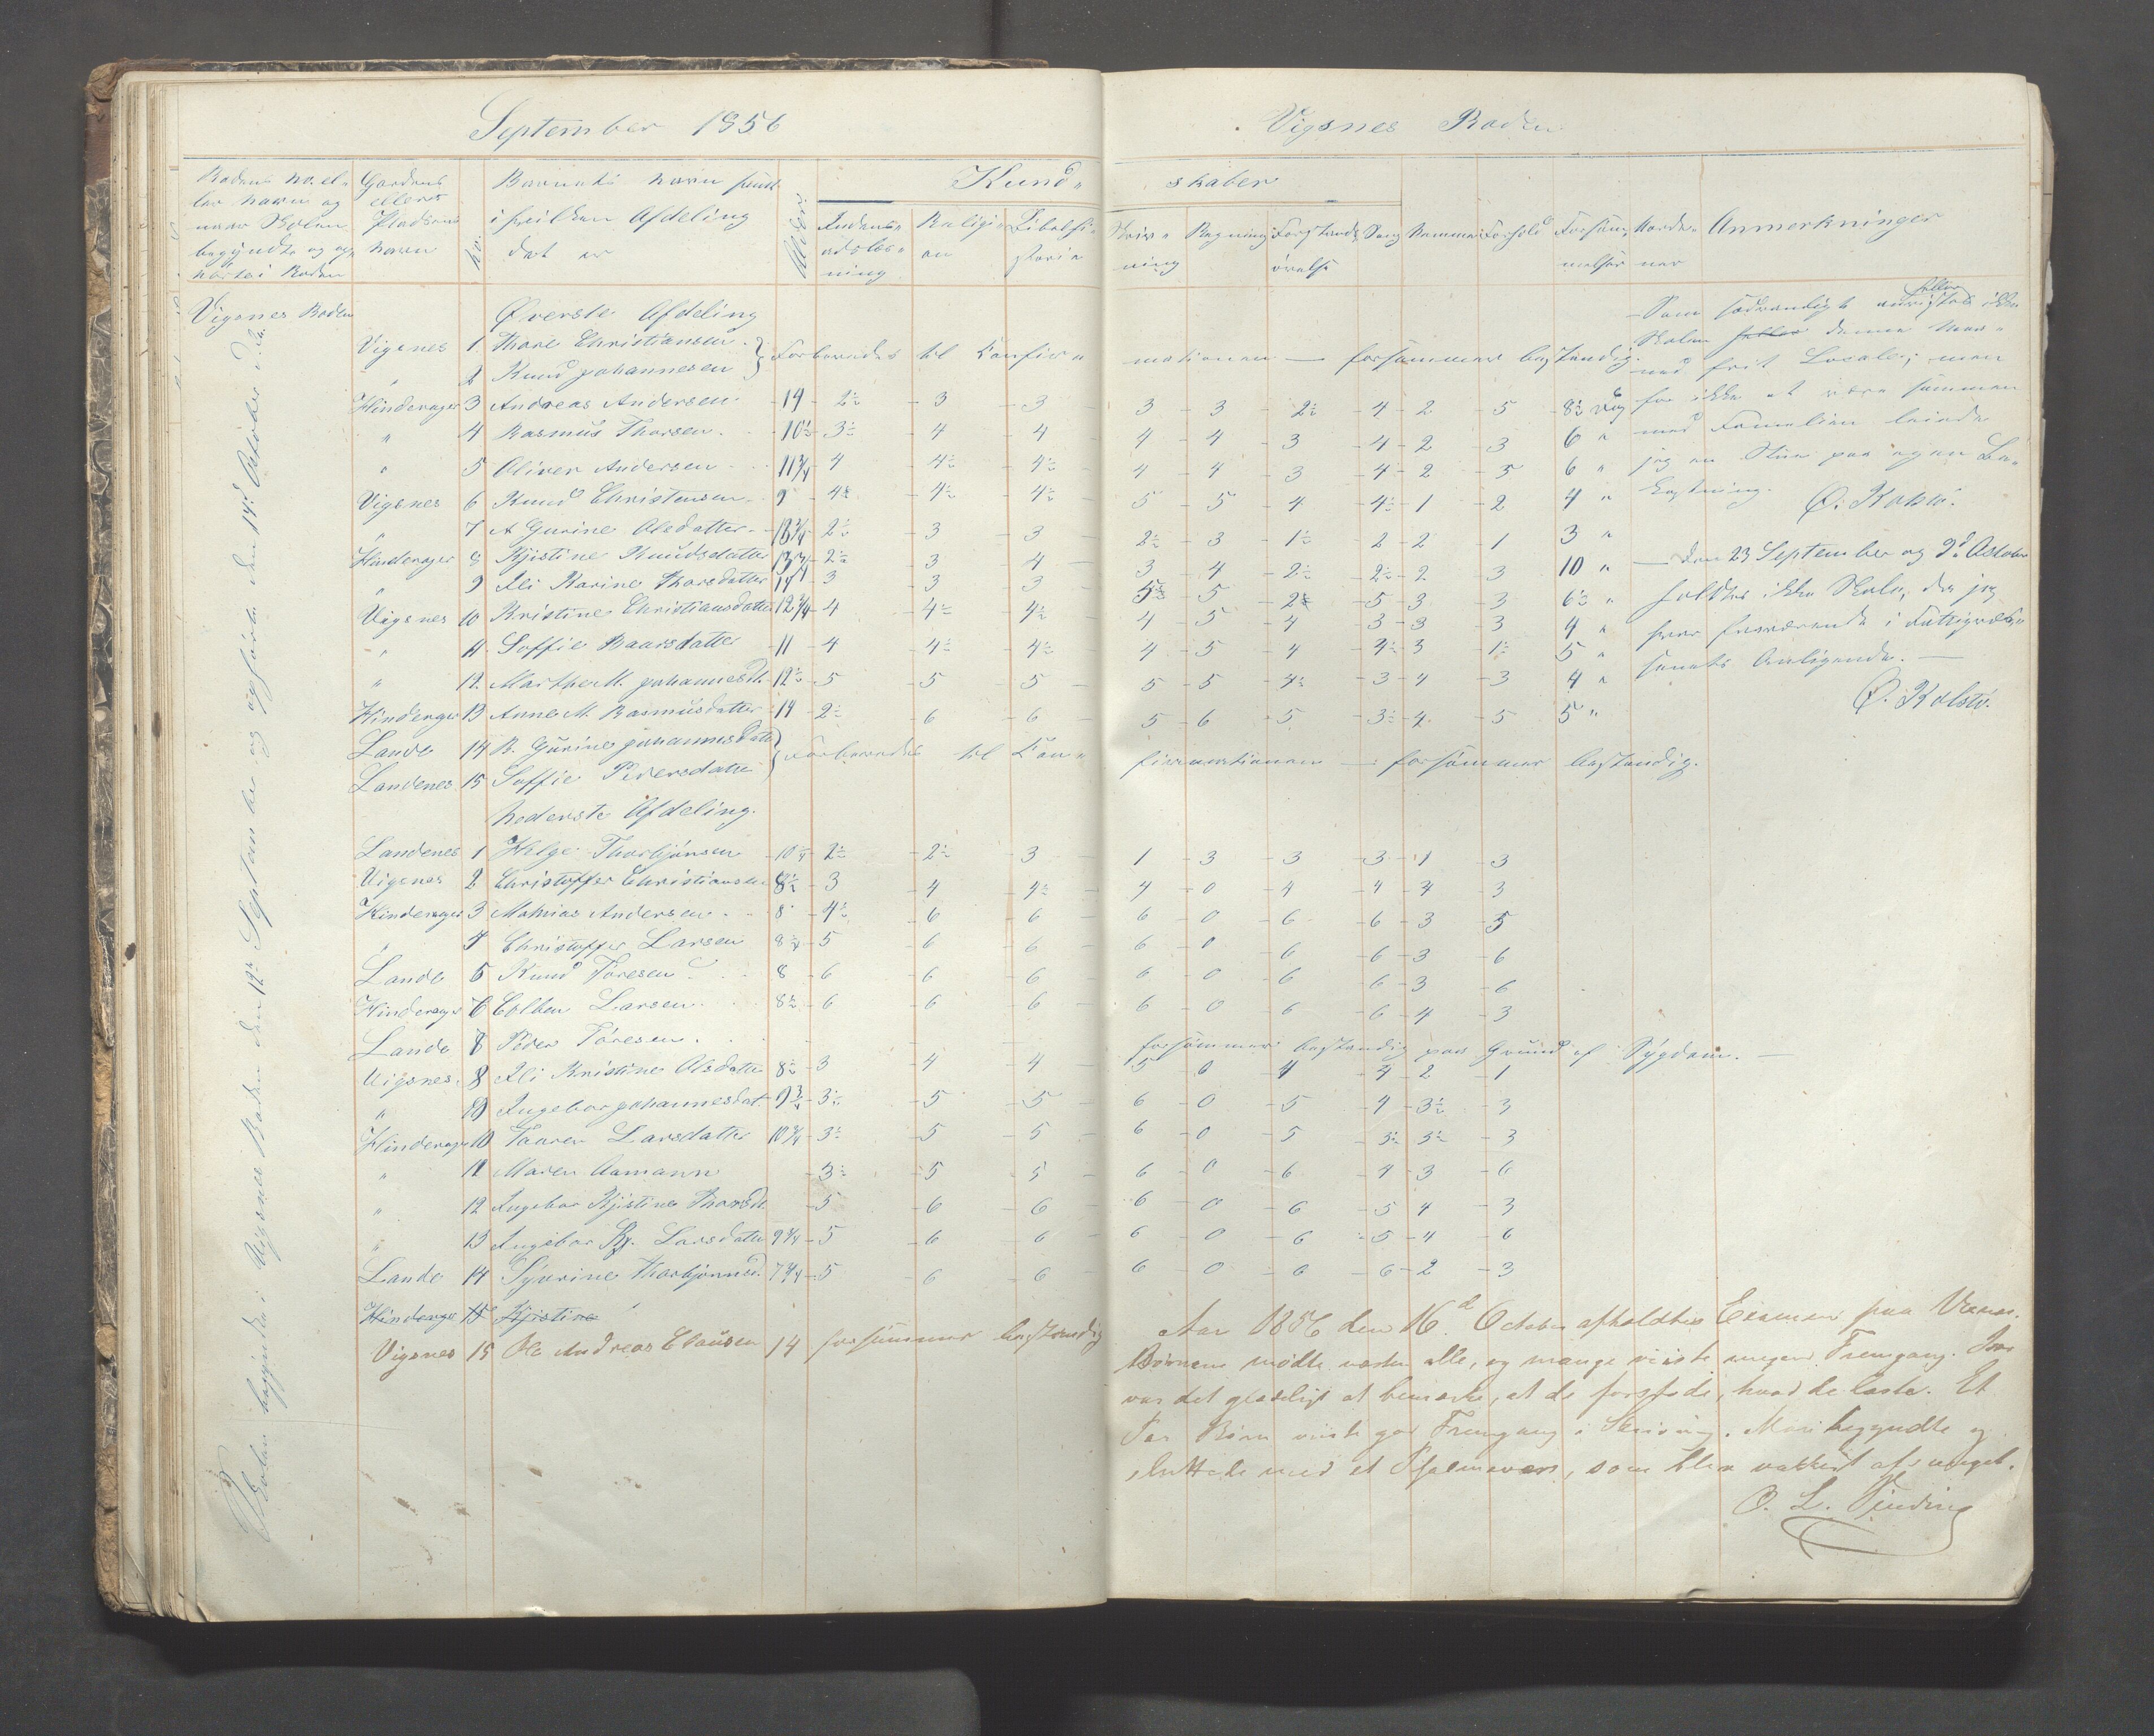 September 1856
Vigsnes Roden
Rodens No. el-
ler Navn og
naar Skolen
begyndte og op-
hørte i Roden
Gaardens
ellers
Pladsens
Navn
No.
Barnets Navn samt
i hvilken Afdeling
det er
Alder
Kund-
skaber
Indenad-
læs-
ning
Religi-
on
Bibelhi-
storie
Skriv-
ning
Regning
Forstands-
øvelse
Sang
Nemme
Forhold
Forsøm-
melser
Anmerkninger
Vigsnes Roden
Øverste Afdeling
Vigsnes 1 Thore Christiansen } Forberedes til Confir- mationen — forsømmer bestandig.
" 2 Knud Johannesen
Hinderager 3 Andreas Andersen 14 - 2½ - 3 - 3 3 - 3 - 2½ - 4 - 2 - 5 - 8½ Dag
" 4 Rasmus Thorsen 10½ - 3½ - 4 - 4 4 - 4 - 3 - 4 - 2 - 3 6 "
" 5 Oliver Andersen 11¾ - 4 - 4½ - 4½ 4 - 4 - 3 - 4 - 2 - 5 6 "
Vigsnes 6 Knud Christensen 9 - 4½ - 4½ - 4½ 5 - 5 - 4 - 4½ - 1 - 2 4 "
" 7 A Gurine Olsdatter 13¾ - 2½ - 3 - 3 2½ - 3 - 1½ - 2 - 2 - 1 3 "
Hinderager 8 Kjistine Knudsdatter 13¾ - 2½ 3 - 4 3 - 4 - 2½ - 2½ - 2 - 3 10 "
" 9 Eli Karine Thorsdatter 14 - 3 - 3 - 3 5½ - 5 - 2½ - 5 - 3 - 3 6½ "
Vigsnes 10 Kristine Christiansdatter 12¾ - 4 - 4½ - 4½ 4 - 5 - 4 - 3 - 3 - 3 4 "
" 11 Soffie Baarsdatter 11 - 4 - 4½ - 4½ 4 - 5 - 4 - 4½ - 3 - 1½ 5 "
" 12 Marthe M. Johannesd. 12½ - 5 - 5 - 5 5 - 5 - 4½ - 3 - 4 - 3 4 "
Hinderager 13 Anne M. Rasmusdatter 14 - 2½ - 6 - 6 5 - 6 - 5 - 3½ - 4 - 5 5 "
Lande 14 B. Gurine Johannesdatter } Forberedes til Con- firmationen — forsømmer bestandig.
Landenes 15 Soffie Pedersdatter
Nederste Afdeling.
Landenes 1 Helge Thorbjønsen - 10¾ - 2½ - 2½ - 3 1 - 3 - 3 - 3 - 1 - 3
Vigsnes 2 Christoffer Christiansen 8½ - 3 - 4 - 4½ 4 - 0 - 4 - 4 - 4 - 3
Hinderager 3 Mathias Andersen 8 - 4½ - 6 - 6 6 - 0 - 6 - 6 - 3 - 5
" 4 Christoffer Larsen 8¾ - 5 - 6 - 6 6 - 0 - 6 - 6 - 3 - 6
Lande 5 Knud Toresen 8 - 6 - 6 - 6 6 - 0 - 6 - 6 - 3 - 6
Hinderager 6 Eolben Larsen 8½ - 6 - 6 - 6 6 - 0 - 6 - 6 - 4 - 3
Lande Peder Toresen forsømmer bestandig paa Grund af Sygdom.
Vigsnes 8 Eli Kristine Olsdatter 8½ - 3 - 4 - 4 5 - 0 - 4 - 4 - 2 - 1
" Ingebor Johannesdat. 9¾ - 3½ - 5 - 5 6 - 0 - 5 - 4 - 3½ - 3
Hinderager 10 Taaren Larsdatter 10¾ - 3½ - 5 - 5 6 - 0 - 5 - 3½ - 3½ - 3
" 11 Maren Aamann - 3½ - 5 5 6 - 0 - 6 - 4 - 3 - 6
" 12 Ingebor Kjistine Thorsd. - 5 - 6 - 6 6 - 0 - 6 - 5 4 - 3
" 13 Ingebor Kj. Larsdatter 9¾ - 5 - 6 - 6 6 - 0 - 6 - 5 - 4 - 6
Lande 14 Syvrine Thorbjønsd. 7¾ - 5 - 6 - 6 6 - 0 - 6 - 6 - 2 - 3
Hinderager 15 Kjistine
Vigsnes 15 Ole Andreas Clausen 14 forsømmer bestandig
Skolen begyndte i Vigsnes Roden den 12te September og ophørte den 14de October
Som sædvanligt
Skolen denne Maa-
ned frit Locale; men
for ikke at være sammen
med Familien leiede
jeg en Stue paa egen Be-
kostning.
O. Kolstø.
— Den 23 September og 9de October
holdtes ikke Skole, da jeg
var fraværende i Fattigvæs-
enets Anliggende. —
O. Kolstø.
Aar 1856 den 16d October afholdtes Examen paa
Børnene mødte næsten alle, og mange viiste megen Fremgang.
var det glædeligt at bemærke, at de forstode, hvad de læste. Et
Par Børn viiste god Fremgang i Skrivning. Man begyndte og
sluttede med et Psalmevers, som blev vakkert afsunget.
O. L.